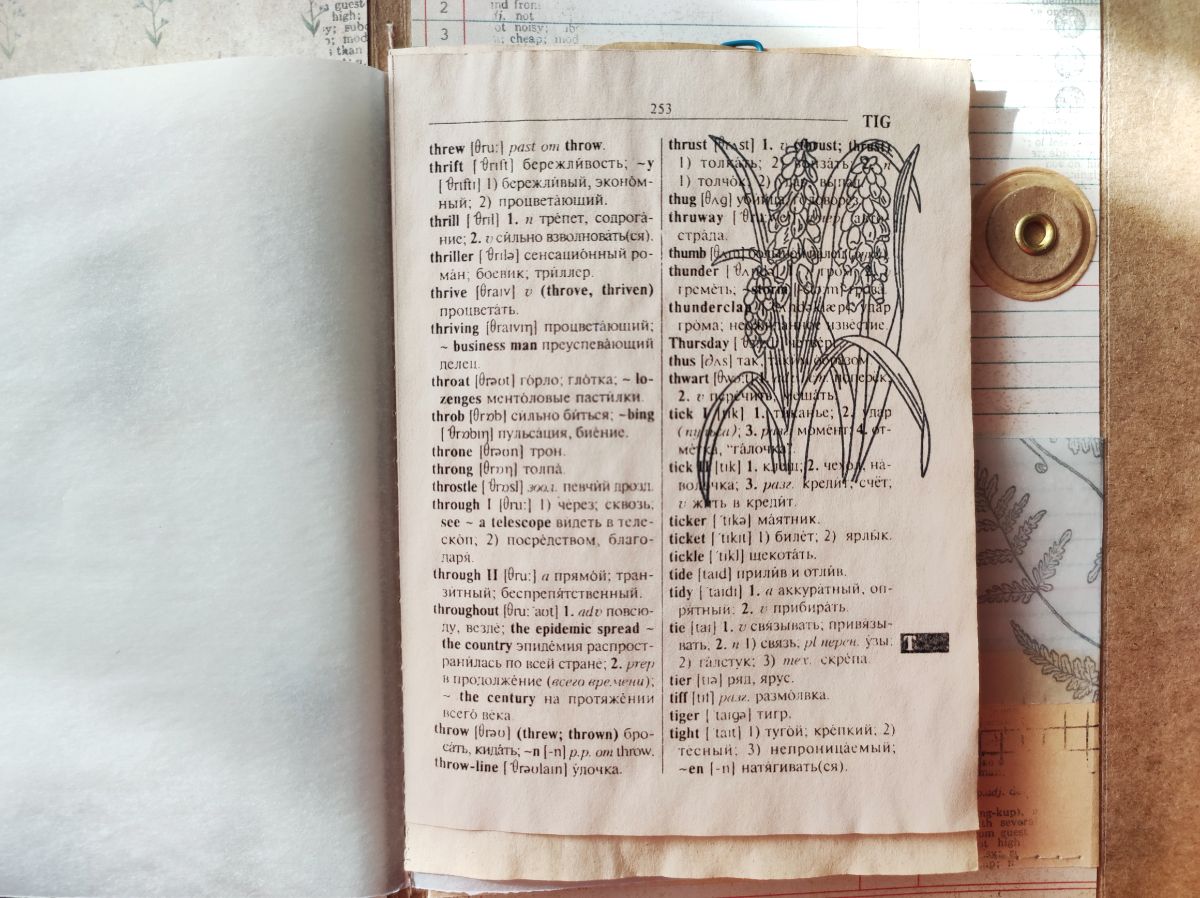 253
TIG
threw [θru:] past от throw.
thrift [ˈθrɪft] бережли́вость; ~y
[ˈθrɪftɪ] 1) бережли́вый, эконо́м-
ный; 2) процвета́ющий.
thrill [ˈθrɪl] 1. n тре́пет, содрога́-
ние; 2. v си́льно взволнова́ть(ся).
thriller [ˈθrɪlə] сенсацио́нный ро-
ма́н; боеви́к; три́ллер.
thrive [θraɪv] v (throve, thriven)
процвета́ть.
thriving [θraɪvɪŋ] процвета́ющий;
~ business man преуспева́ющий
делец.
throat [θrəʊt] го́рло; гло́тка; ~ lo-
zenges менто́ловые пасти́лки.
throb [θrɒb] сильно би́ться; ~bing
[ˈθrɒbɪŋ] пульса́ция, бие́ние.
throne [θrəʊn] трон.
throng [θrɒŋ] толпа́.
throstle [ˈθrɒsl] зоол. певчий дрозд.
through I [θru:] 1) че́рез; сквозь;
see ~ a telescope ви́деть в теле-
ско́п; 2) посре́дством, благо-
даря́.
through II [θru:] a прямо́й; тран-
зи́тный; беспрепя́тственный.
throughout [θru:ˈaʊt] 1. adv повсю-
ду, везде́; the epidemic spread ~
the country эпиде́мия распрост-
рани́лась по всей стране; 2. prep
в продолже́ние (всего времени);
~ the century на протяже́нии
всего́ века.
throw [θrəʊ] (threw; thrown) бро-
са́ть, кида́ть; ~n [-n] p.p. от throw.
throw-line [ˈθrəʊlaɪn] у́дочка.
thrust [θrʌst] 1. v (thrust; thrust)
1) толка́ть; 2) 2. n
1) толчо́к; 2)
thug [θʌg] уби́йца, головоре́з.
thruway
стра́да.
thumb
thunder 1. гром; 2. v
греме́ть; ~storm гроза.
thunderclap удар
гро́ма; неожи́данное изве́стие.
Thursday четве́рг.
thus [ðʌs] так, таки́м о́бразом.
thwart поперёк;
2. v пере́чить, меша́ть.
tick I [tɪk] 1. ти́канье; 2. удар
(пульса); 3. разг. моме́нт; 4. от-
ме́тка, “га́лочка”.
tick II [tɪk] 1. клещ; 2. чехо́л, на-
воло́чка; 3. разг. креди́т; счёт;
v жить в креди́т.
ticker [ˈtɪkə] ма́ятник.
ticket [ˈtɪkɪt] 1) биле́т; 2) ярлы́к.
tickle [ˈtɪkl] щекота́ть.
tide [taɪd] прили́в и отли́в.
tidy [ˈtaɪdɪ] 1. a аккура́тный, оп-
ря́тный; 2. v прибира́ть.
tie [taɪ] 1. v свя́зывать; привя́зы-
вать; 2. n 1) связь; pl перен. у́зы;
2) га́лстук; 3) тех. скре́па.
T
tier [tɪə] ряд, ярус.
tiff [tɪf] разг. размо́лвка.
tiger [ˈtaɪgə] тигр.
tight [ˈtaɪt] 1) туго́й; кре́пкий; 2)
те́сный; 3) непроница́емый;
~en [-n] натя́гивать(ся).